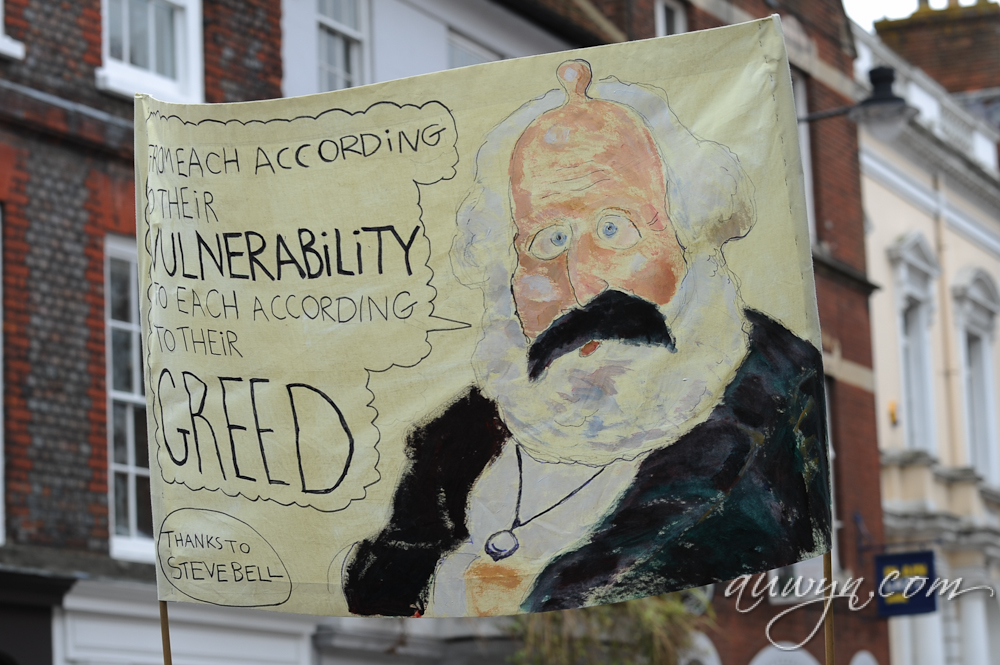 FROM EACH ACCORDING
TO THEIR
VULNERABILITY
TO EACH ACCORDING
TO THEIR
GREED
THANKS TO
STEVE BELL
auwyn.com